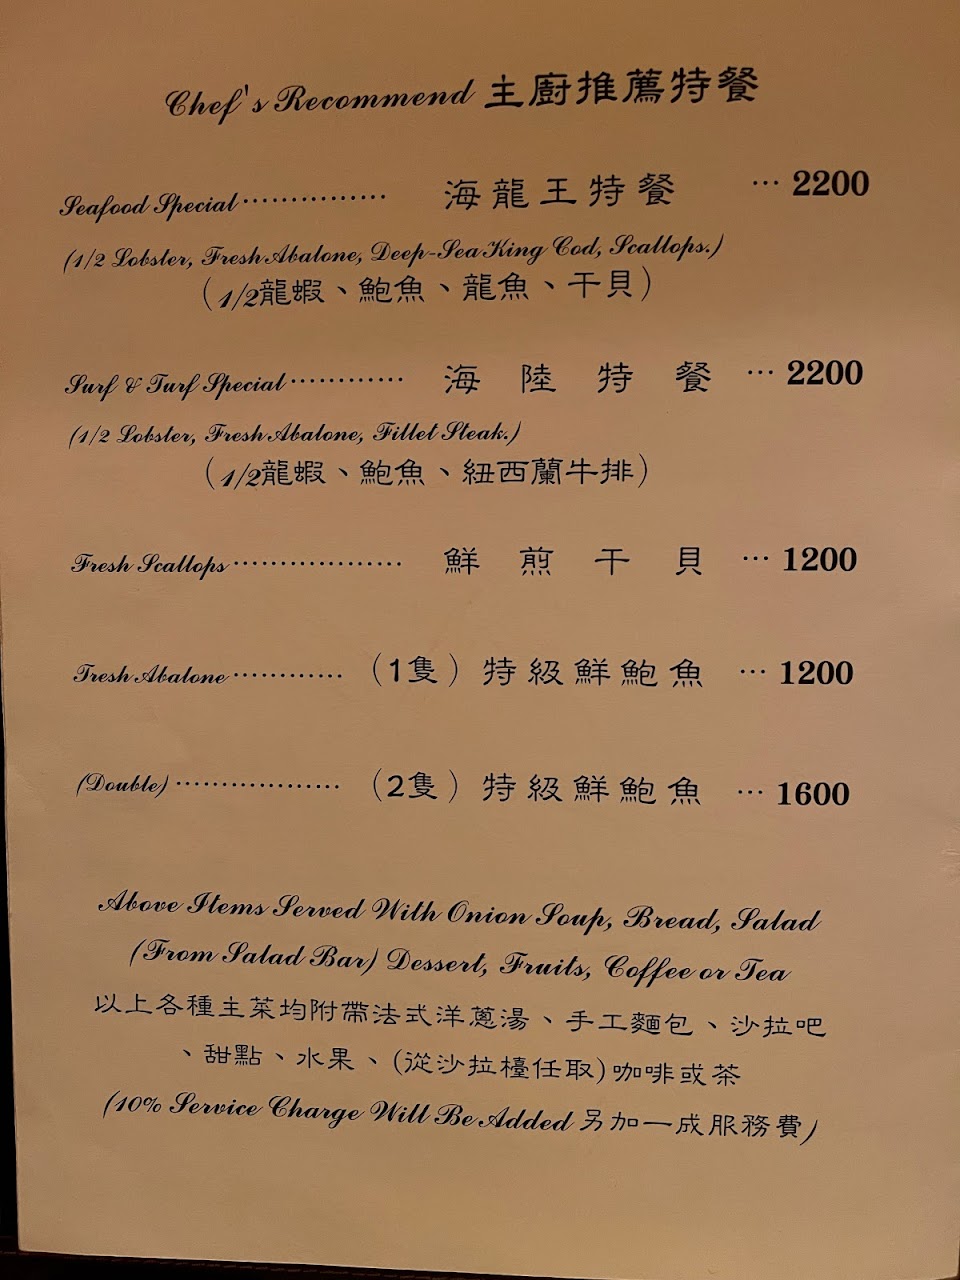 Chef's Recommend 主廚推薦特餐
Seafood Special ··············· 海龍王特餐 ··· 2200
(1/2 Lobster, Fresh Abalone, Deep-Sea King Cod, Scallops.)
(1/2龍蝦、鮑魚、龍魚、干貝)
Surf & Turf Special ············ 海陸特餐 ··· 2200
(1/2 Lobster, Fresh Abalone, Fillet Steak.)
(1/2龍蝦、鮑魚、紐西蘭牛排)
Fresh Scallops ·················· 鮮煎干貝 ··· 1200
Fresh Abalone ············ (1隻) 特級鮮鮑魚 ··· 1200
(Double) ·················· (2隻) 特級鮮鮑魚 ··· 1600
Above Items Served With Onion Soup, Bread, Salad
(From Salad Bar) Dessert, Fruits, Coffee or Tea
以上各種主菜均附帶法式洋蔥湯、手工麵包、沙拉吧
、甜點、水果、(從沙拉檯任取)咖啡或茶
(10% Service Charge Will Be Added 另加一成服務費)